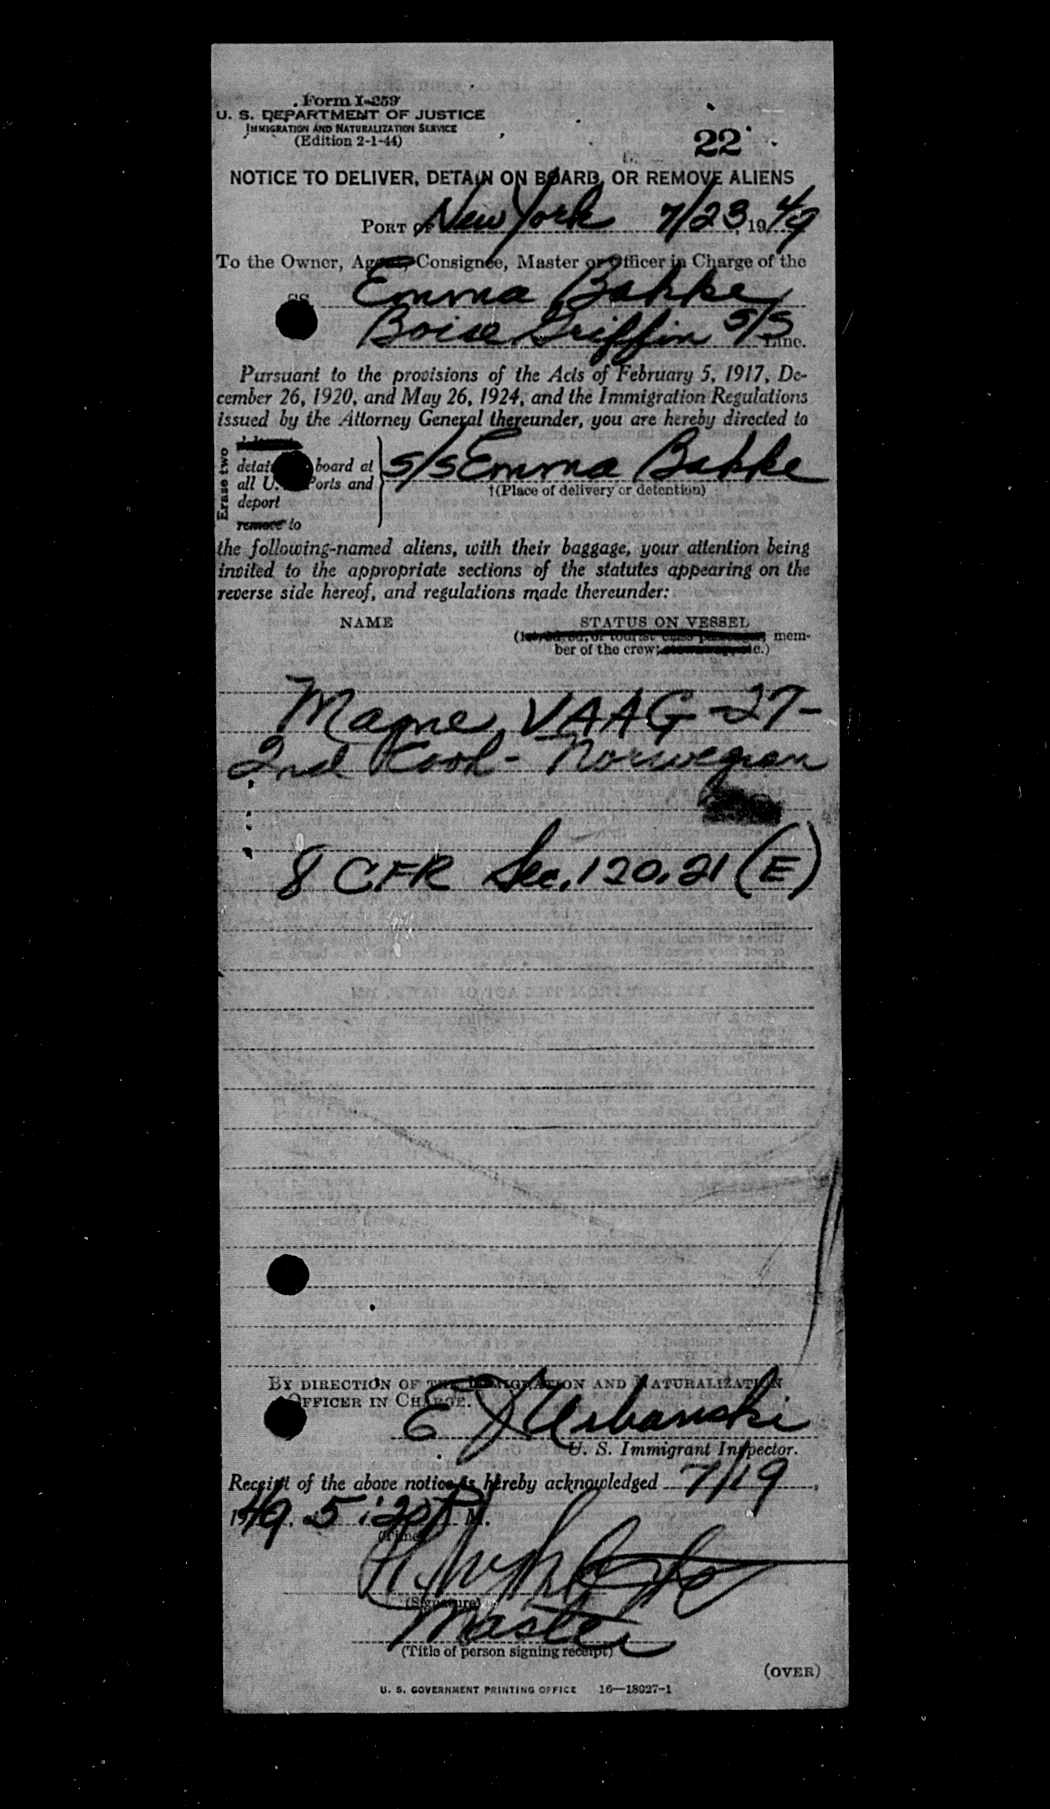 Form I-259
U. S. DEPARTMENT OF JUSTICE
IMMIGRATION AND NATURALIZATION SERVICE
(Edition 2-1-44)
22
NOTICE TO DELIVER, DETAIN ON BOARD, OR REMOVE ALIENS
PORT OF New York 7/23, 1949
To the Owner, Agent, Consignee, Master or Officer in Charge of the
SS Emma Bakke
Boise Griffin S/S Line.
Pursuant to the provisions of the Acts of February 5, 1917, De-
cember 26, 1920, and May 26, 1924, and the Immigration Regulations
issued by the Attorney General thereunder, you are hereby directed to
Erase two
detain board at S/S Emma Bakke
all U. Ports and †(Place of delivery or detention)
deport
remove to
the following-named aliens, with their baggage, your attention being
invited to the appropriate sections of the statutes appearing on the
reverse side hereof, and regulations made thereunder:
NAME STATUS ON VESSEL
mem-
ber of the crew, etc.)
Magne VAAG -27-
2nd Cook - Norwegian
8 CFR Sec. 120.21 (E)
BY DIRECTION OF THE IMMIGRATION AND NATURALIZATION
OFFICER IN CHARGE.
E J Urbanski
U. S. Immigrant Inspector.
Receipt of the above notice is hereby acknowledged 7/19,
1949. 5:20 P M.
(Time)
(Signature)
Master
(Title of person signing receipt)
(OVER)
U. S. GOVERNMENT PRINTING OFFICE 16—18027-1